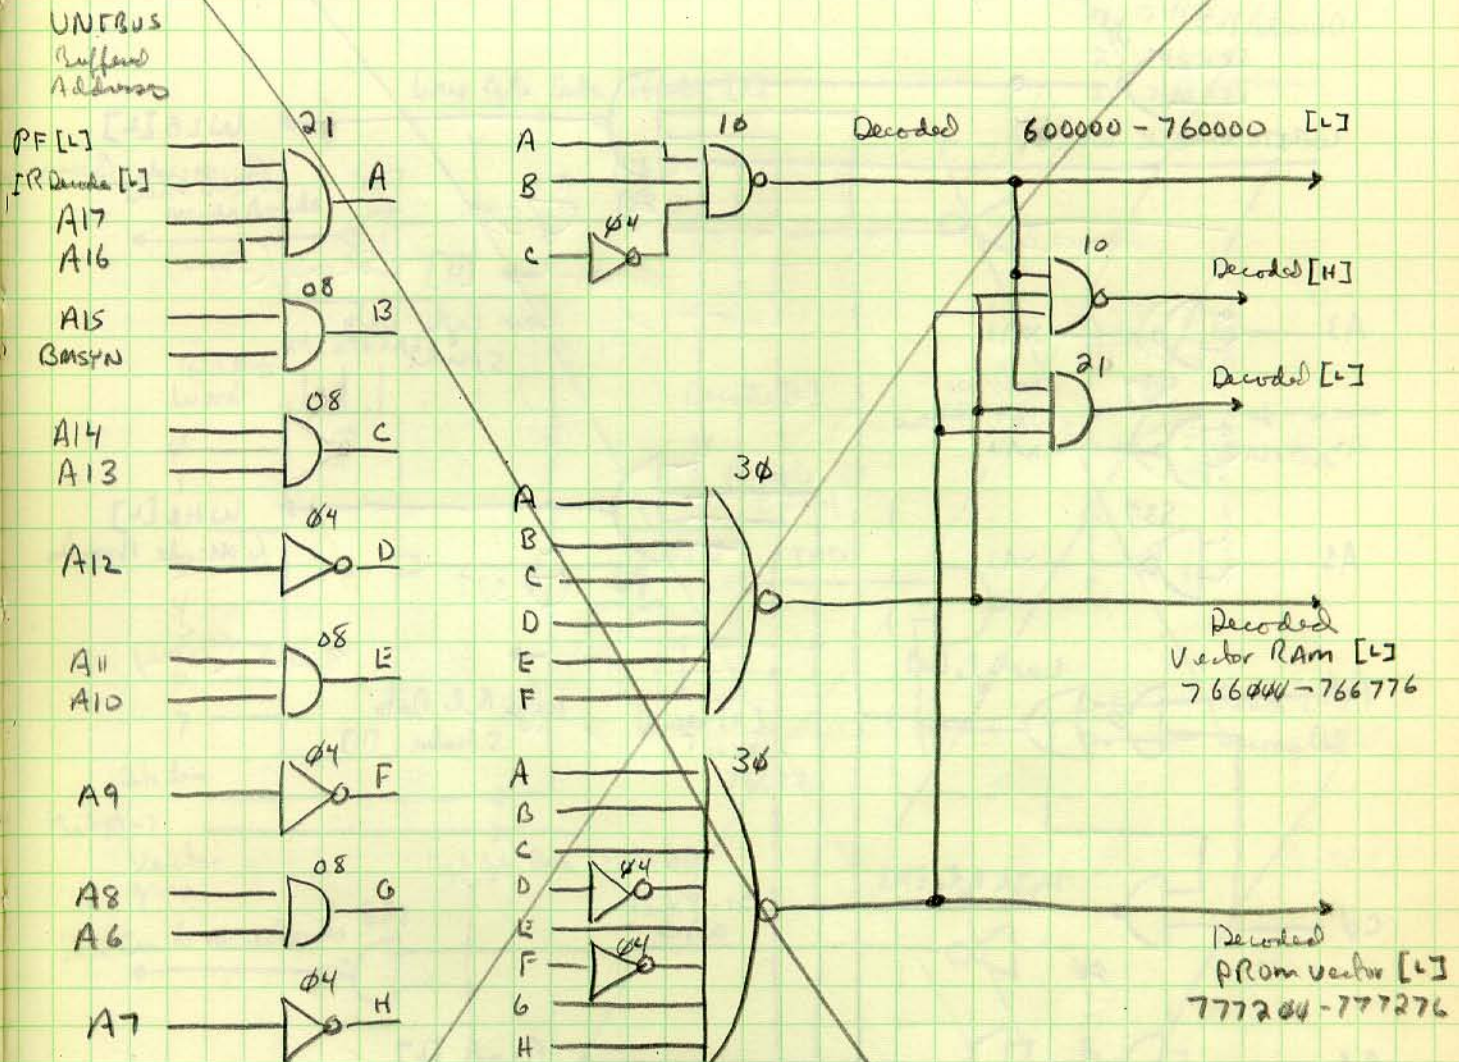 UNIBUS
Buffered
Addresses
PF [L]
IR Decode [L]
A17
A16
21
A
A15
BMSYN
08
B
A14
A13
08
C
A12
04
D
A11
A10
08
E
A9
04
F
A8
A6
08
G
A7
04
H
A
B
C
04
10
Decoded 600000 - 760000 [L]
10
Decoded [H]
21
Decoded [L]
A
B
C
D
E
F
30
Decoded
Vector RAM [L]
766000 - 766776
A
B
C
D
04
E
F
04
G
H
30
Decoded
PROM Vector [L]
777200 - 777276